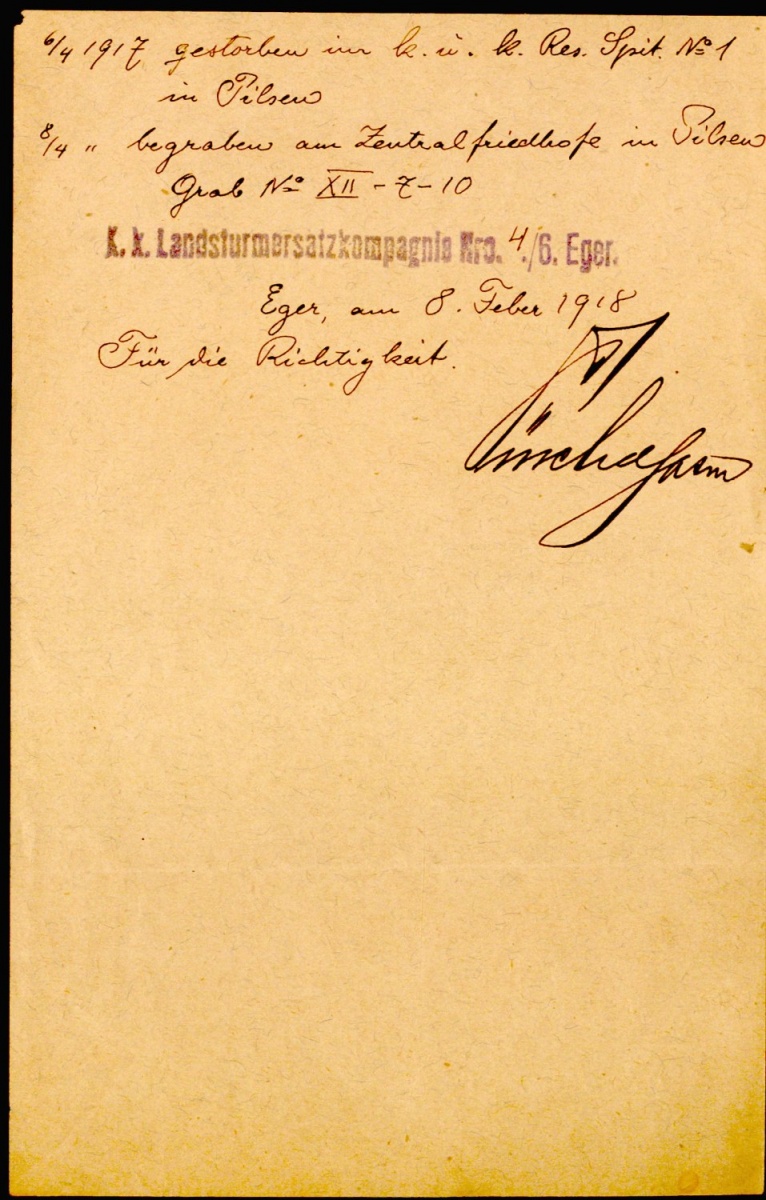 6/4 1917 gestorben im k. u. k. Res. Spit. No 1
in Pilsen
8/4 " begraben am Zentralfriedhofe in Pilsen
Grab No XII - 7 - 10
K. k. Landsturmersatzkompagnie Nro. 4./6. Eger.
Eger, am 8. Feber 1918
Für die Richtigkeit.